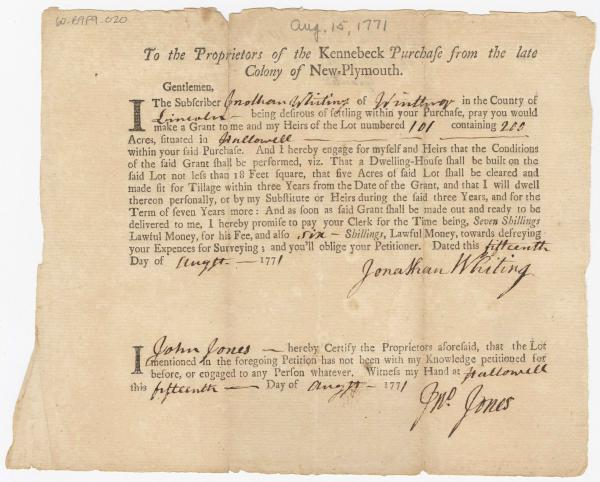 60-R989-020
Aug. 15, 1771
To the Proprietors of the Kennebeck Purchase from the late
Colony of New-Plymouth.
Gentlemen,
I The Subscriber Jonathan Whiting of Winthrop in the County of
Lincoln — being desirous of settling within your Purchase, pray you would
make a Grant to me and my Heirs of the Lot numbered 101 containing 200
Acres, situated in Hallowell —
within your said Purchase. And I hereby engage for myself and Heirs that the Conditions
of the said Grant shall be performed, viz. That a Dwelling-House shall be built on the
said Lot not less than 18 Feet square, that five Acres of said Lot shall be cleared and
made fit for Tillage within three Years from the Date of the Grant, and that I will dwell
thereon personally, or by my Substitute or Heirs during the said three Years, and for the
Term of seven Years more: And as soon as said Grant shall be made out and ready to be
delivered to me, I hereby promise to pay your Clerk for the Time being, Seven Shillings
Lawful Money, for his Fee, and also six — Shillings, Lawful Money, towards defreying
your Expences for Surveying; and you'll oblige your Petitioner. Dated this fifteenth
Day of Augst. — 1771
Jonathan Whiting
I John Jones — hereby Certify the Proprietors aforesaid, that the Lot
mentioned in the foregoing Petition has not been with my Knowledge petitioned for
before, or engaged to any Person whatever. Witness my Hand at Hallowell
this fifteenth — Day of Augst — 1771
Jno. Jones